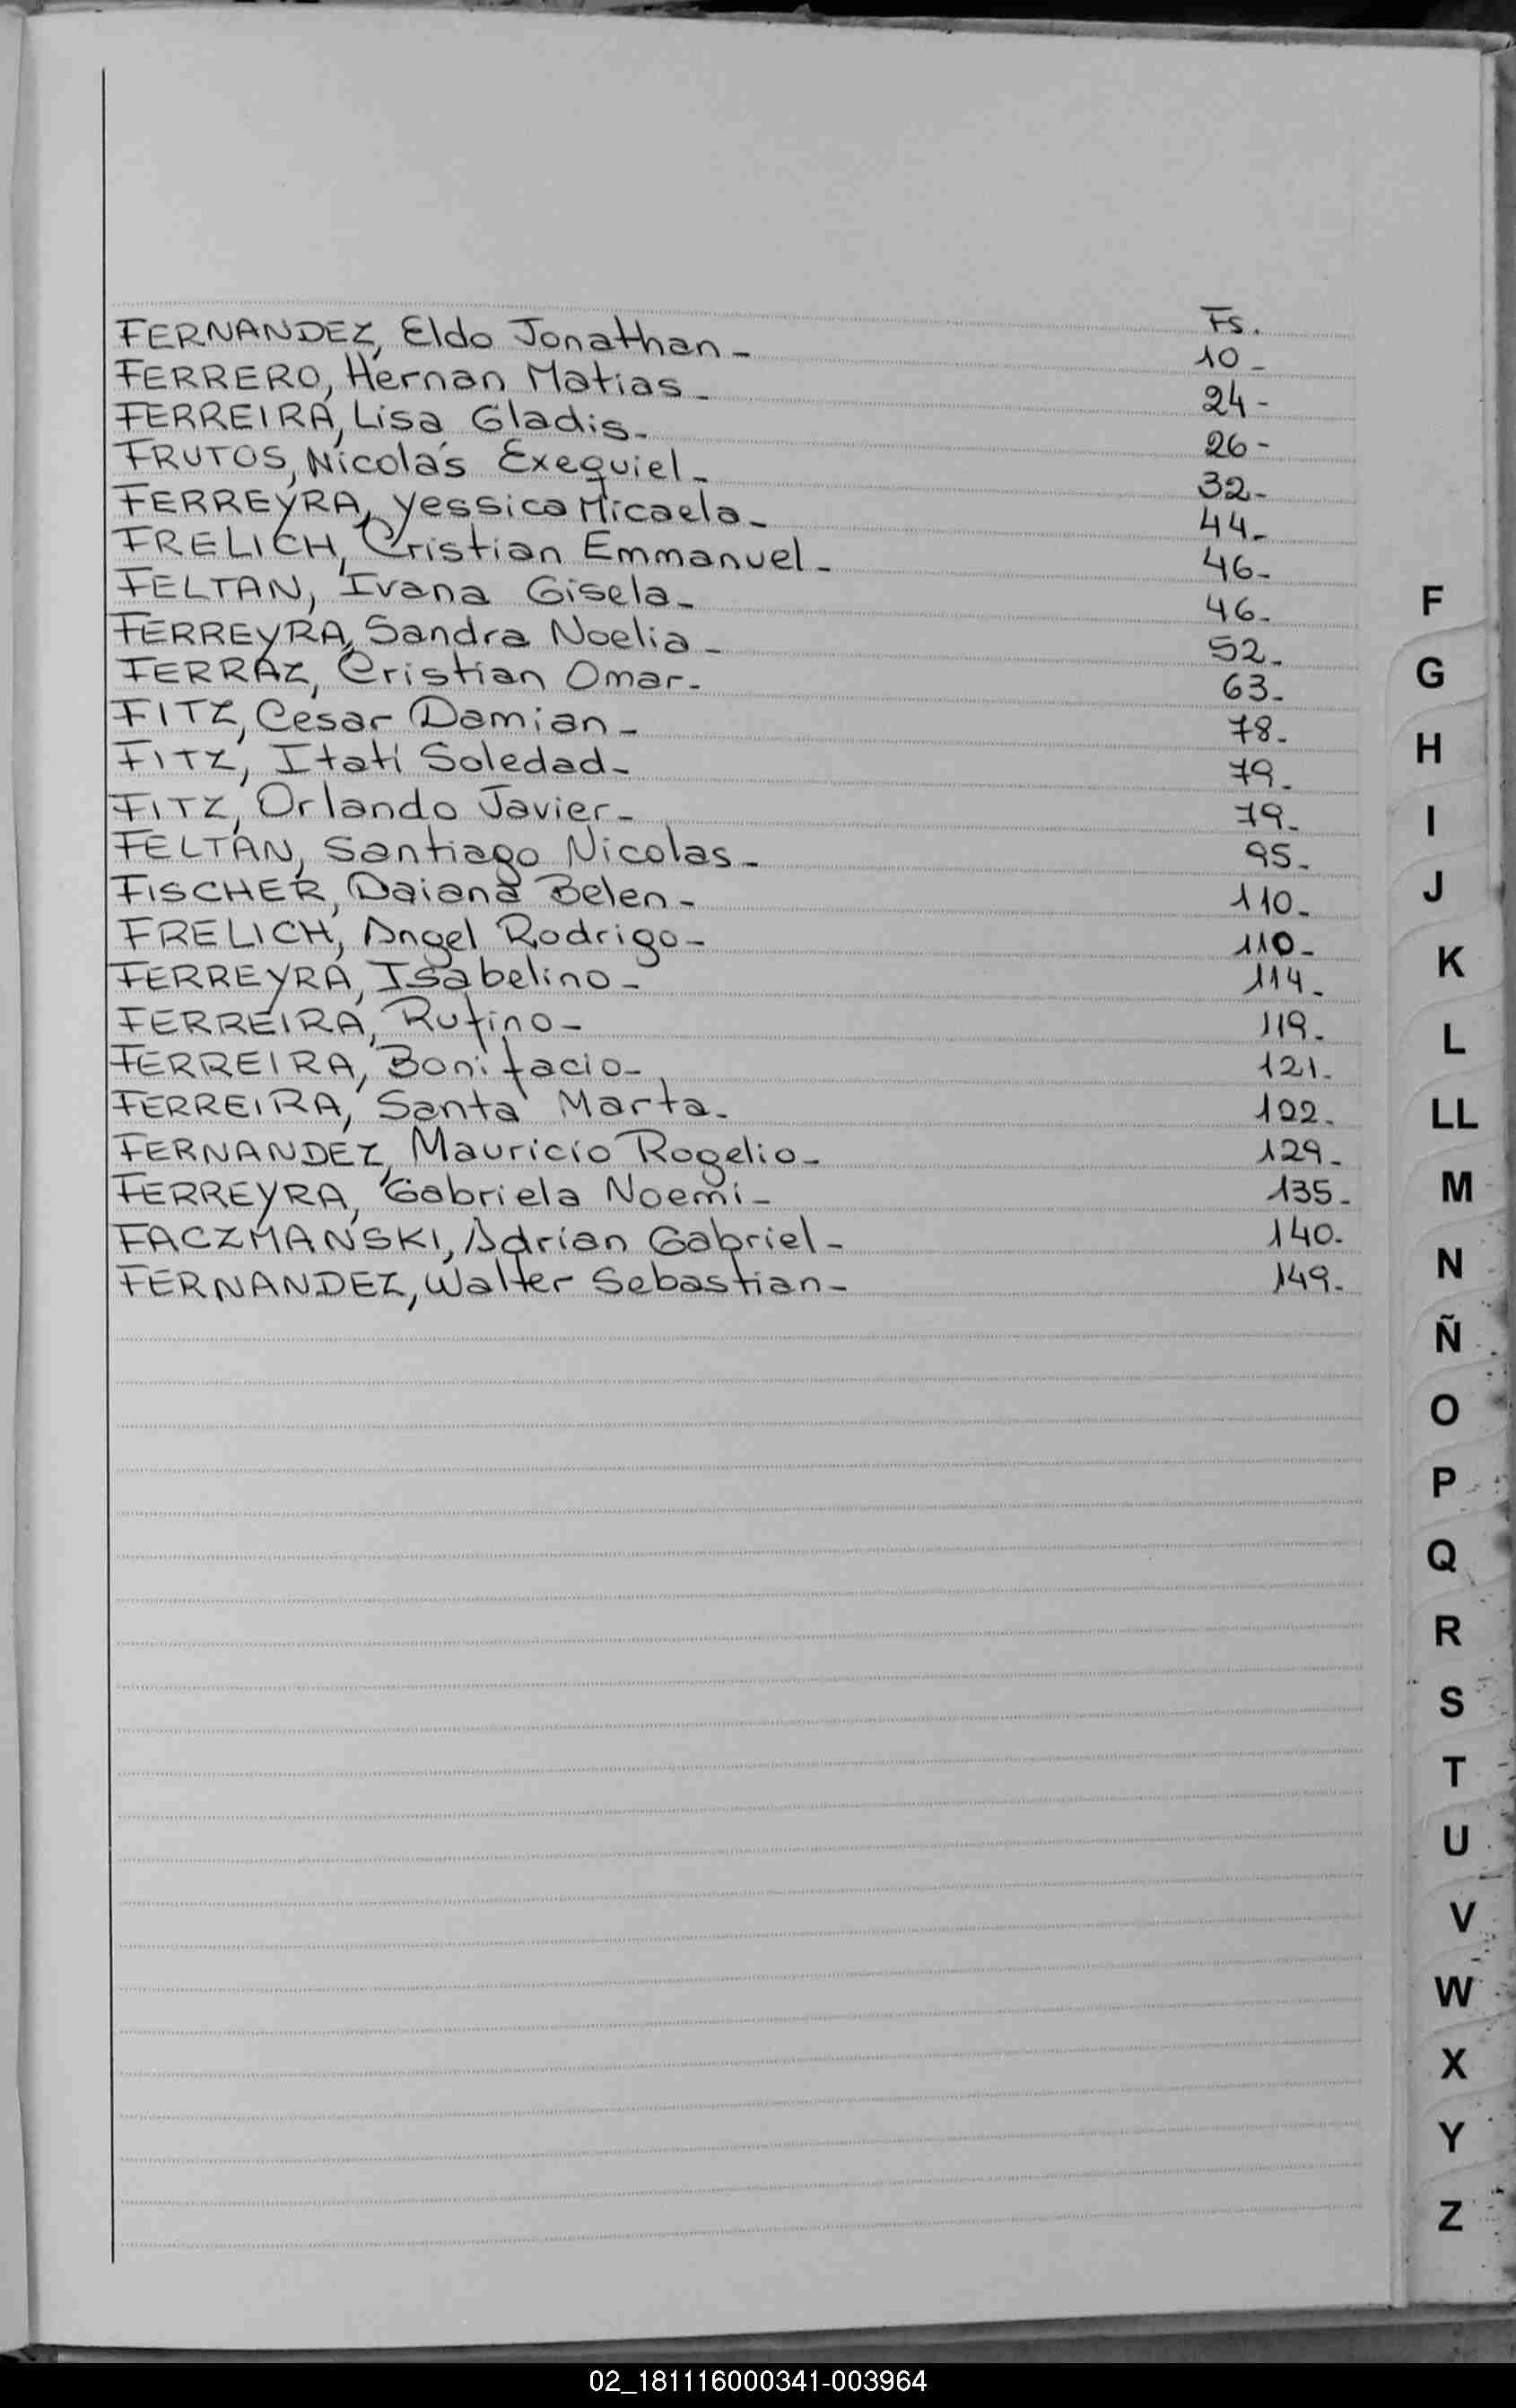 Fs.
FERNANDEZ, Eldo Jonathan- 10-
FERRERO, Hernan Matias- 24-
FERREIRA, Lisa Gladis- 26-
FRUTOS, Nicolás Exequiel- 32-
FERREYRA, Yessica Micaela- 44-
FRELICH, Cristian Emmanuel- 46-
FELTAN, Ivana Gisela- 46-
FERREYRA, Sandra Noelia- 52-
FERRAZ, Cristian Omar- 63-
FITZ, Cesar Damian- 78-
FITZ, Itatí Soledad- 79-
FITZ, Orlando Javier- 79-
FELTAN, Santiago Nicolas- 95-
FISCHER, Daiana Belen- 110-
FRELICH, Angel Rodrigo- 110-
FERREYRA, Isabelino- 114-
FERREIRA, Rufino- 119-
FERREIRA, Bonifacio- 121-
FERREIRA, Santa Marta- 122-
FERNANDEZ, Mauricio Rogelio- 129-
FERREYRA, Gabriela Noemi- 135-
FACZMANSKI, Adrian Gabriel- 140-
FERNANDEZ, Walter Sebastian- 149-
F
G
H
I
J
K
L
LL
M
N
Ñ
O
P
Q
R
S
T
U
V
W
X
Y
Z
02_181116000341-003964